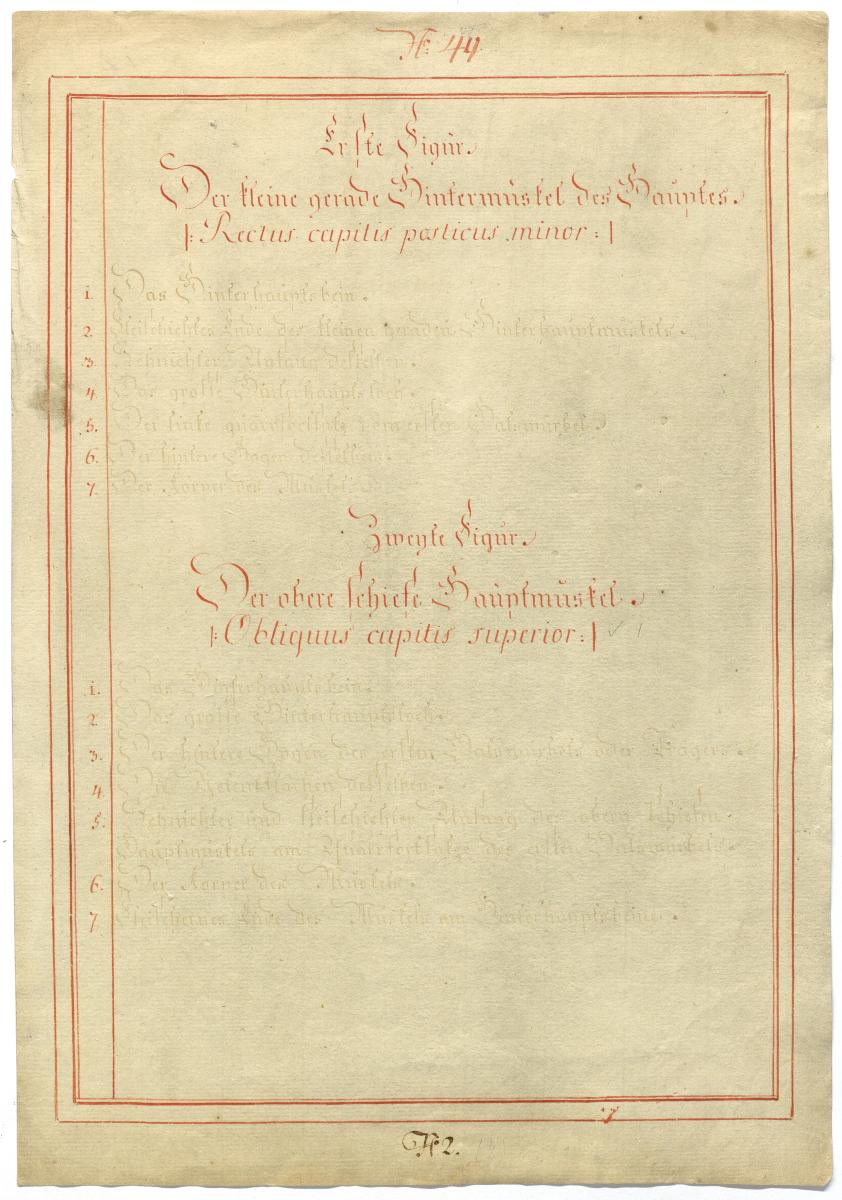 No: 44
Erste Figur.
Der kleine gerade Hintermuskel des Hauptes.
|: Rectus capitis posticus minor :|
1. Das Hinterhauptsbein.
2. Fleischichtes Ende des kleinen geraden Hinterhauptmuskels.
3. Sehnichter Anfang desselben.
4. Das grosse Hinterhauptsloch.
5. Der linke ersten Halswürbel
6. Der hintere Bogen desselben.
7. Der Körper des Muskels.
Zweyte Figur.
Der obere schiefe Hauptmuskel.
|: Obliquus capitis superior :|
1. Das Hinterhauptsbein.
2. Das grosse Hinterhauptsloch.
3. Der hintere Bogen des ersten Halswürbels oder Trägers.
4. Die Gelenkflächen desselben.
5. Sehnichter und fleischichter Anfang des obern schiefen
Hauptmuskels am Quärfortsatze des ersten Halswürbels.
6. Der Körper des Muskels.
7 Ende des Muskels am Hinterhauptsbeine.
7
No 2.